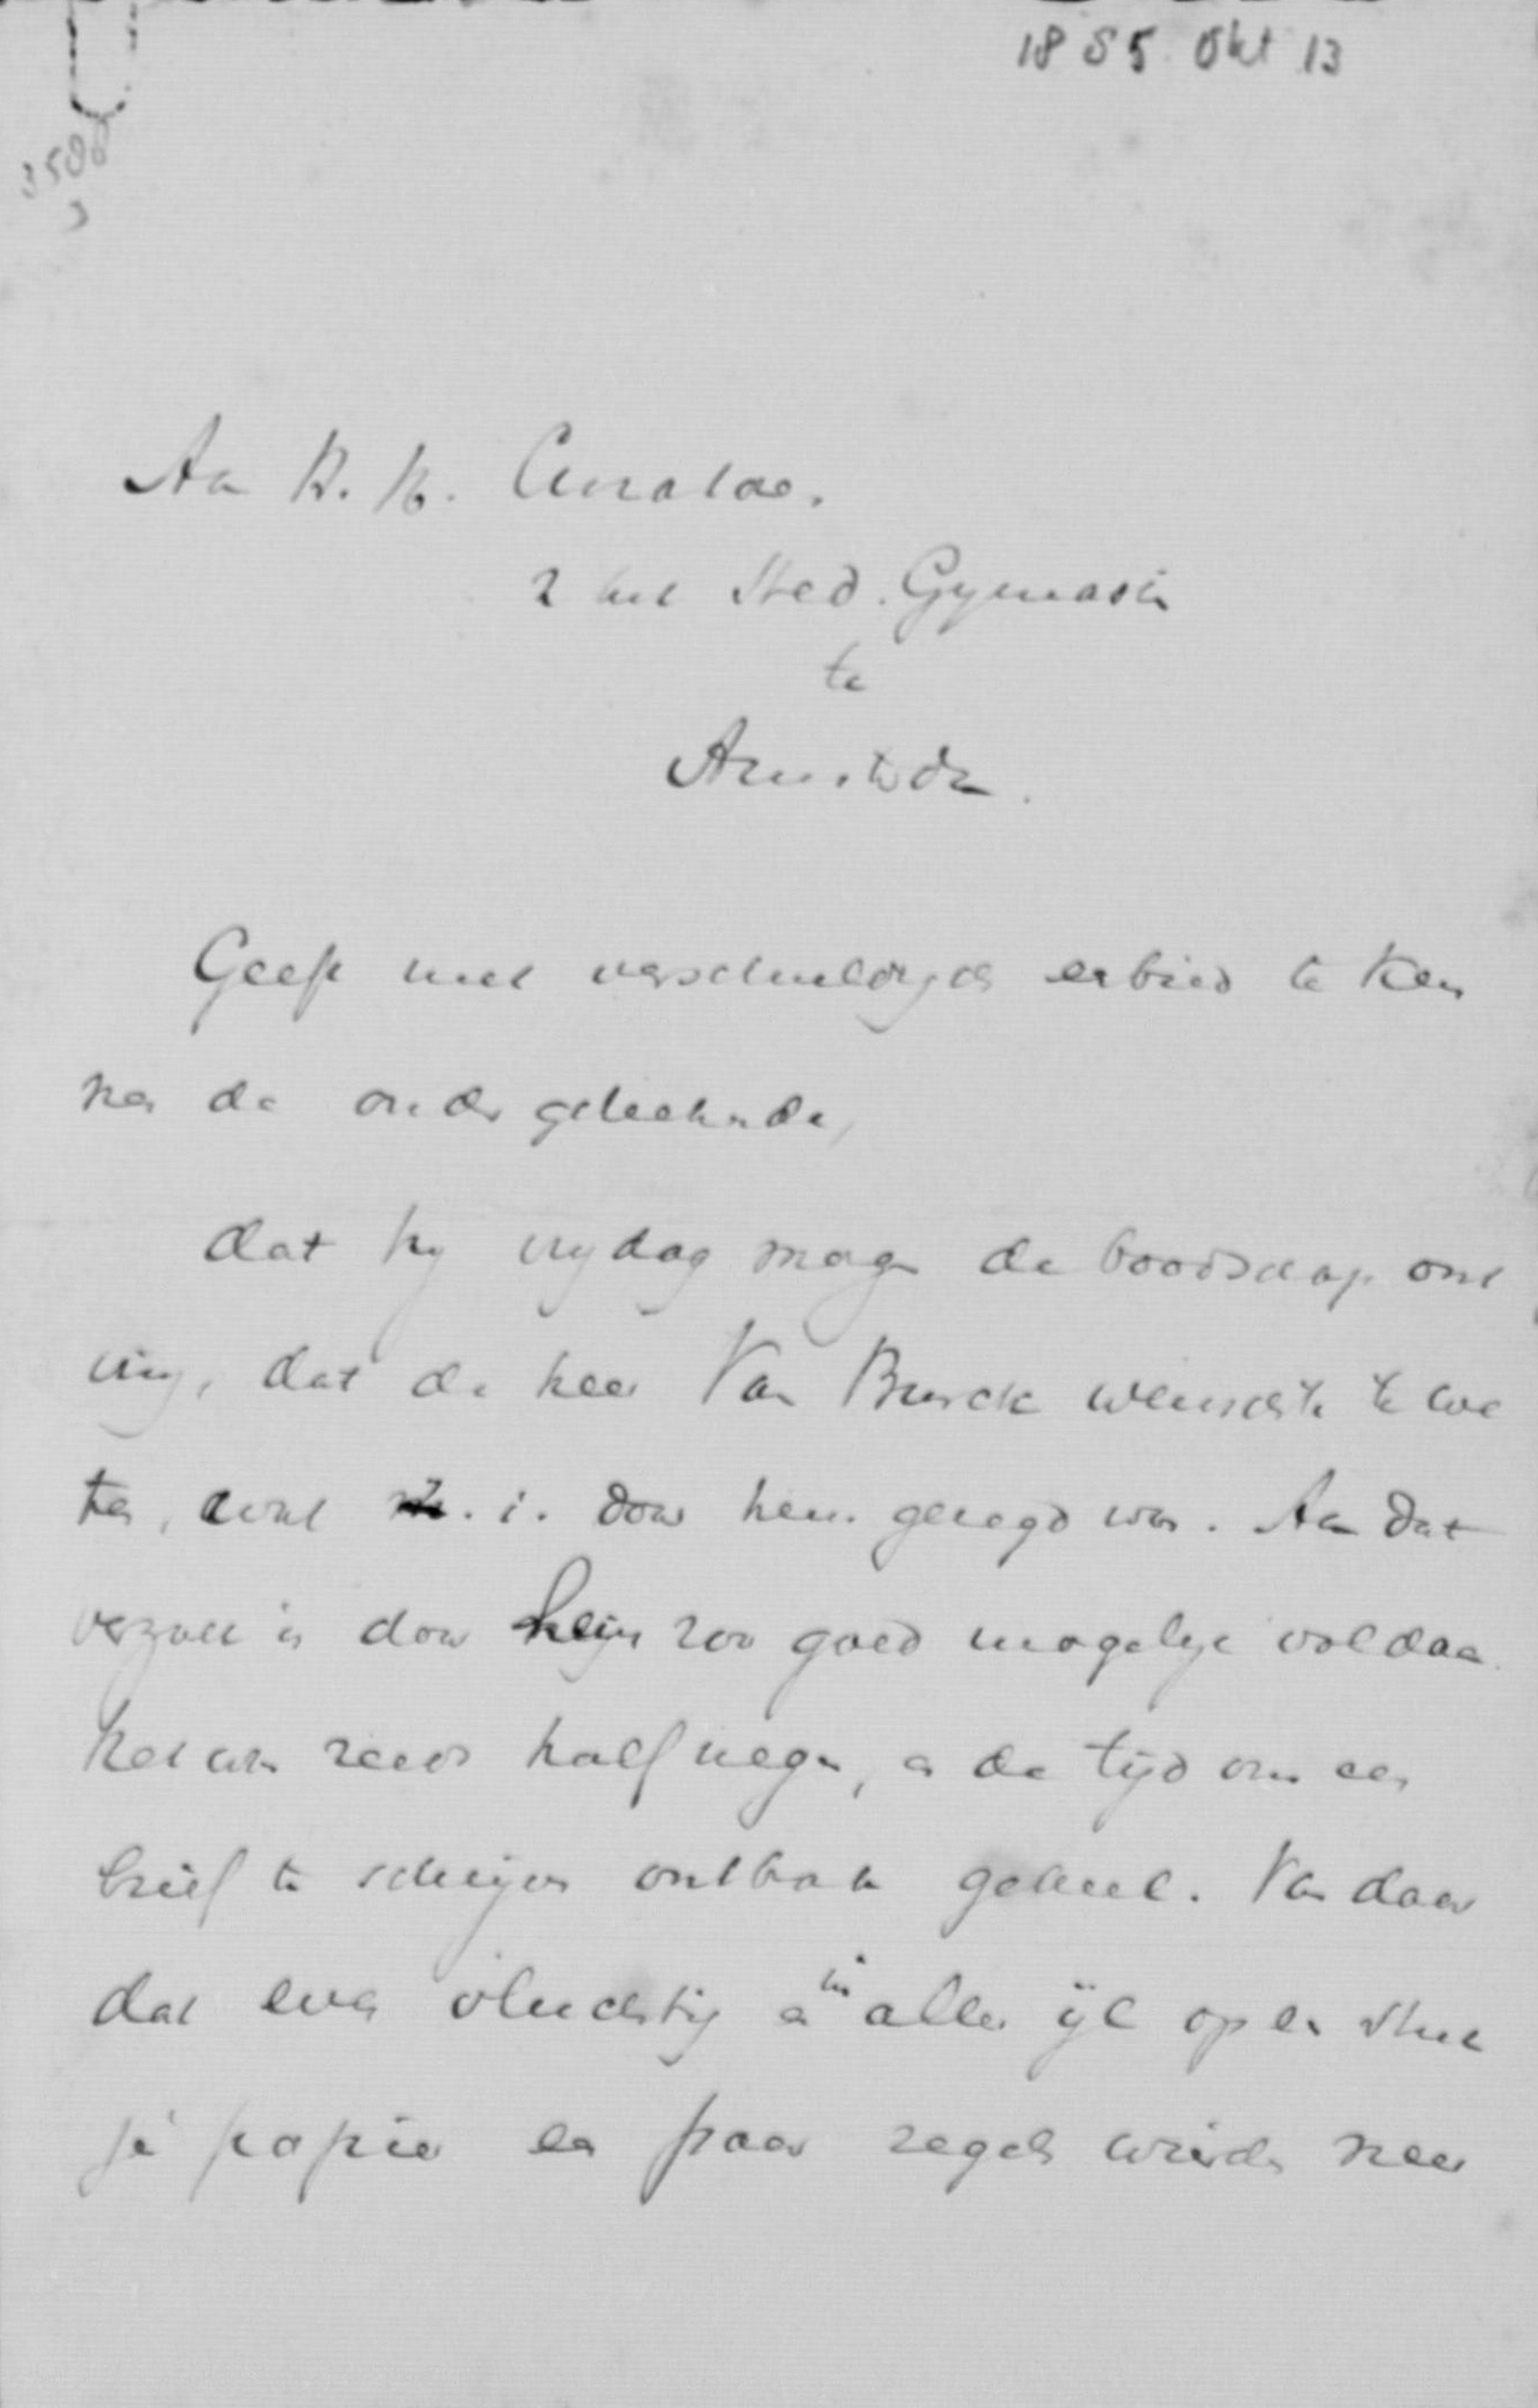 1885 Okt 13
3588
Aa H. H. Curatoe.
v het Sted. Gymnasiu
te
Amstda.
Geeft met verschuldigde eerbied te ken
ne de ondergeteekende,
dat hy vrydag morge de boodschap ont
ving, dat de heer Van Burck wenschte te we
te, wat . i. door hem gezegd was. Aa dat
verzoek is door hem zoo goed mogelyk voldaa
het was reeds half nege, e de tijd om ee
brief te schrijve ontbrak geheel. Va daar
dat eve vluchtig e in aller ijl op ee stuk
je papier ee paar regels wierde neer